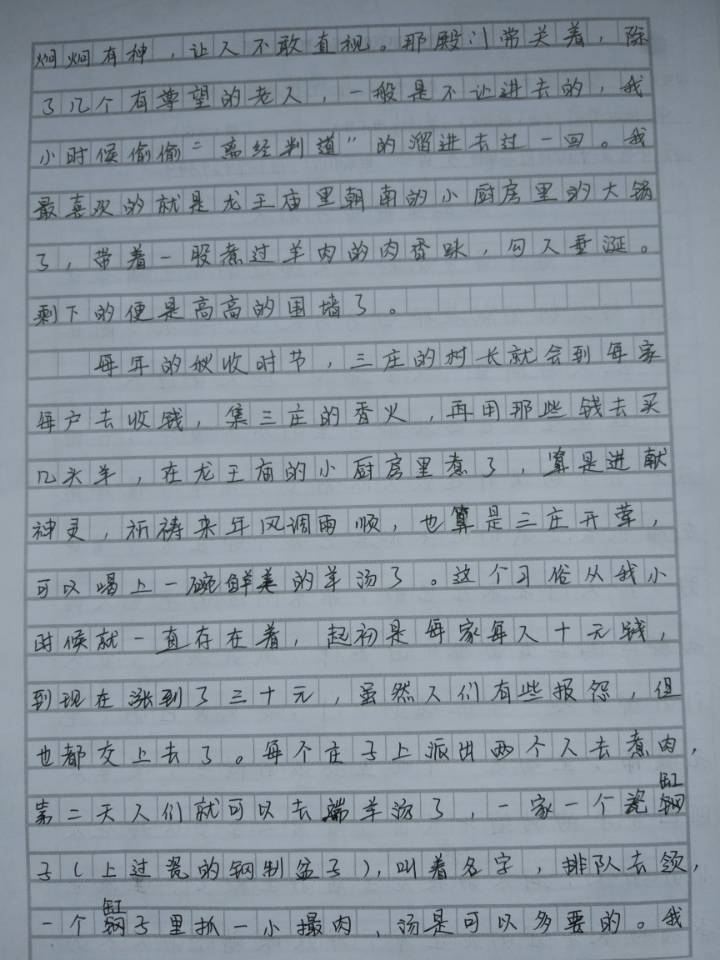 炯炯有神，让人不敢直视。那殿门常关着，除
了几个有尊望的老人，一般是不让进去的，我
小时候偷偷“离经判道”的溜进去过一回。我
最喜欢的就是龙王庙里朝南的小厨房里的大锅
了，带着一股煮过羊肉的肉香味，勾人垂涎。
剩下的便是高高的围墙了。
每年的秋收时节，三庄的村长就会到每家
每户去收钱，集三庄的香火，再用那些钱去买
几头羊，在龙王庙的小厨房里煮了，算是进献
神灵，祈祷来年风调雨顺，也算是三庄开荤，
可以喝上一碗鲜美的羊汤了。这个习俗从我小
时候就一直存在着，起初是每家每人十元钱，
到现在涨到了三十元，虽然人们有些报怨，但
也都交上去了。每个庄子上派出两个人去煮肉，
第二天人们就可以去端羊汤了，一家一个瓷缸
子（上过瓷的钢制盆子），叫着名字，排队去领，
一个缸子里抓一小撮肉，汤是可以多要的。我